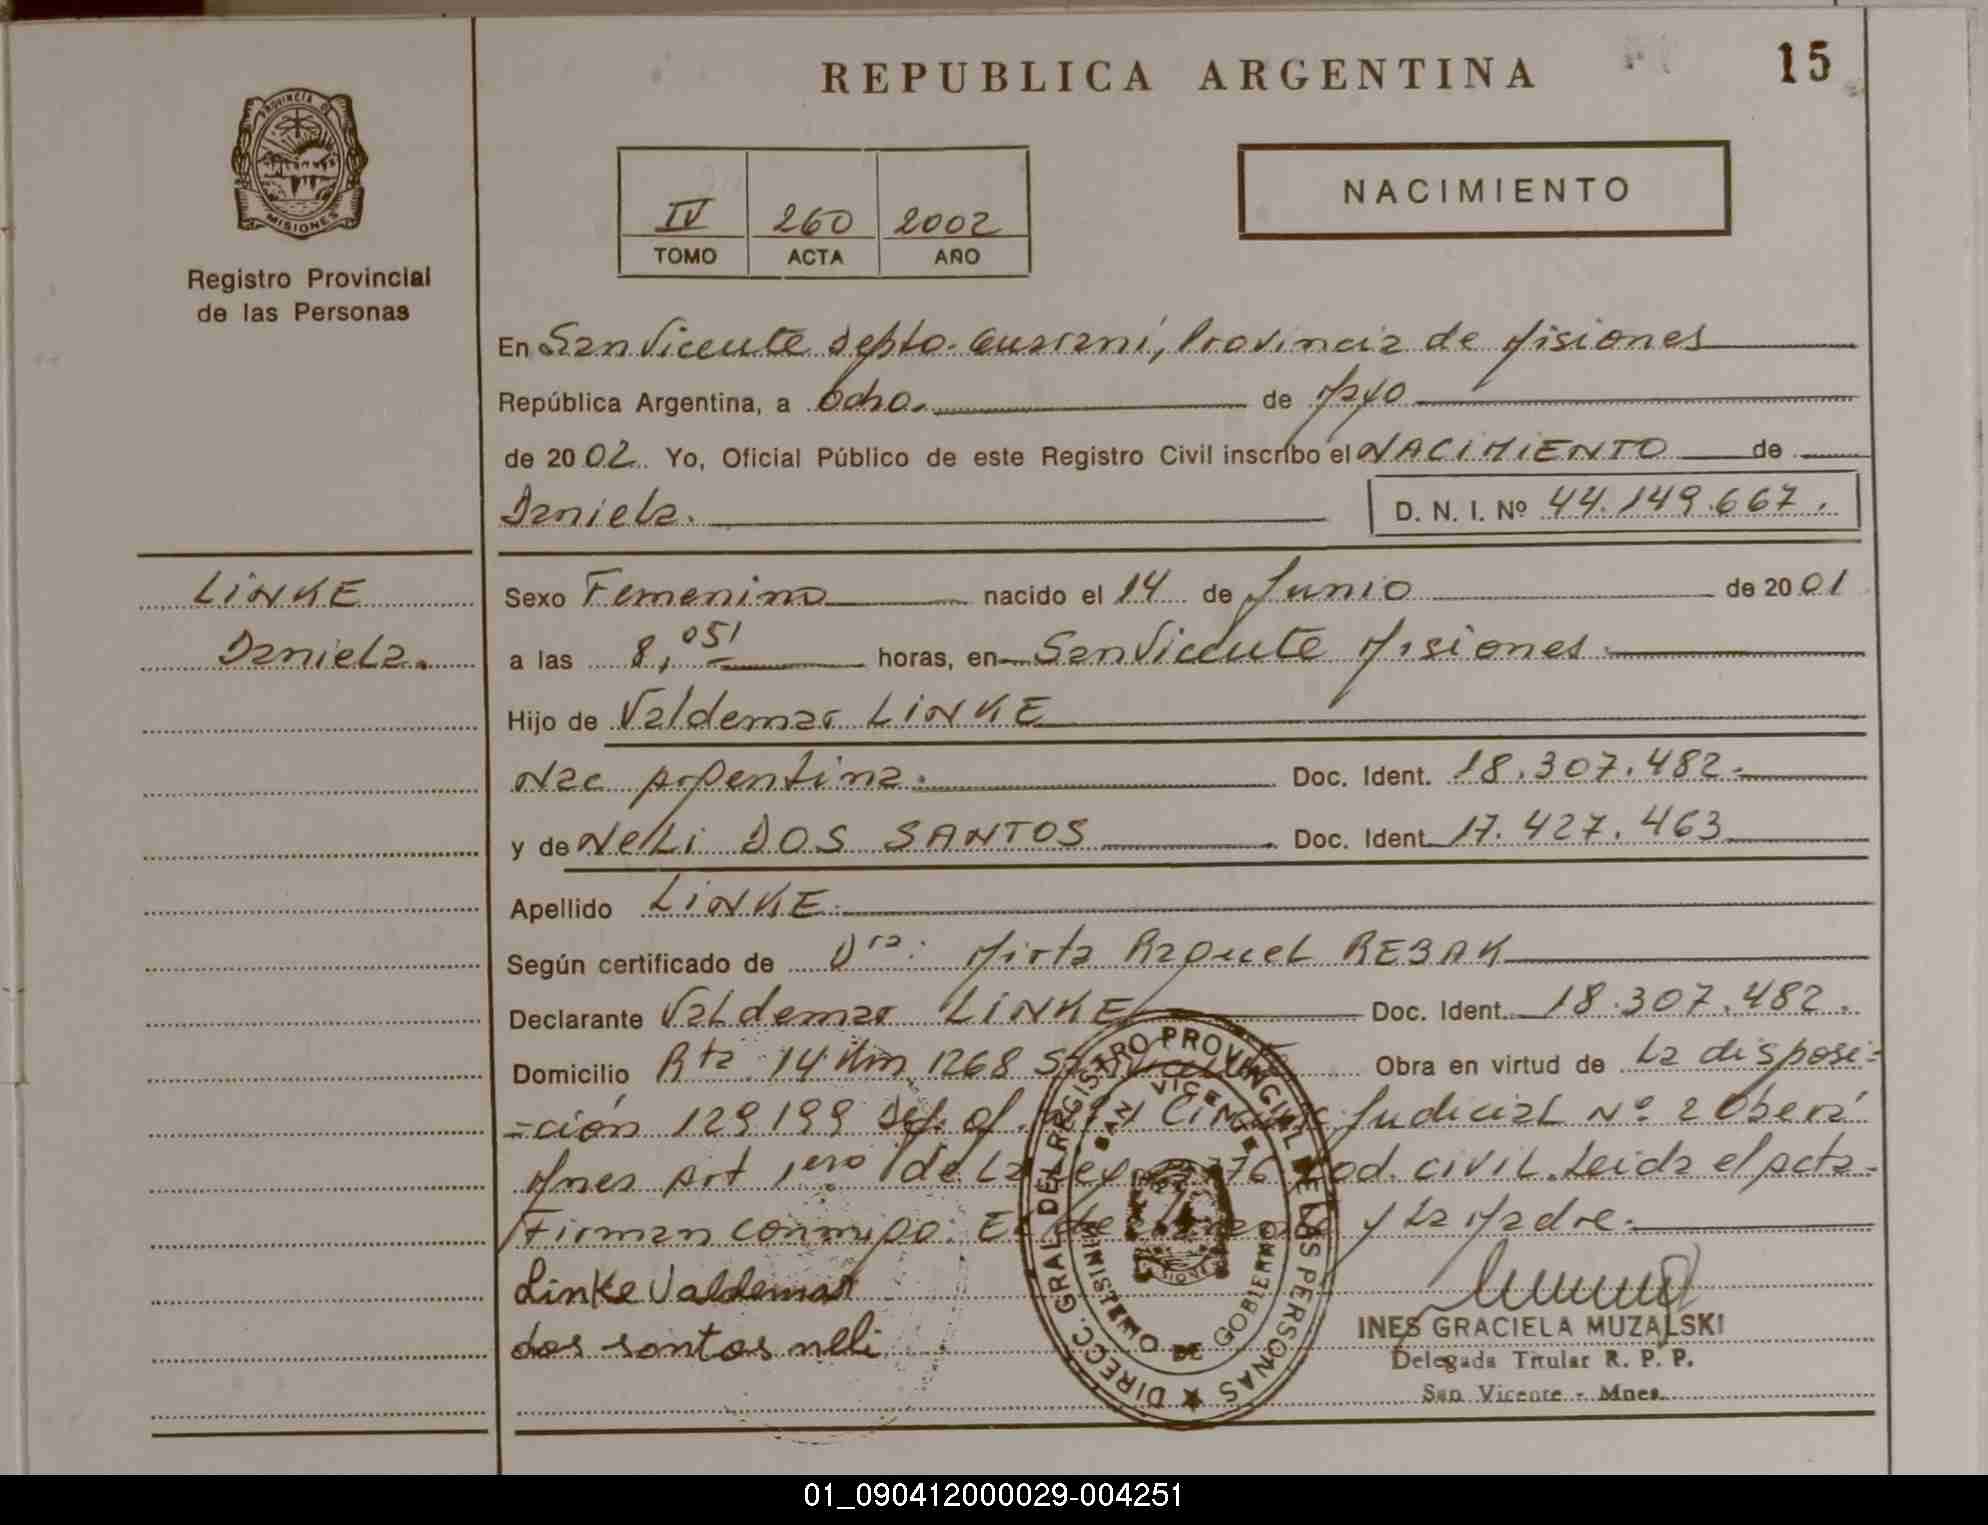 REPUBLICA ARGENTINA
15
PROVINCIA DE MISIONES
Registro Provincial
de las Personas
IV 260 2002
TOMO ACTA AÑO
NACIMIENTO
En San Vicente Depto. Guaraní, Provincia de Misiones
República Argentina, a ocho. de Mayo
de 2002. Yo, Oficial Público de este Registro Civil inscribo el NACIMIENTO de
Daniela. D. N. I. Nº 44.149.667.
LINKE
Daniela.
Sexo Femenino nacido el 14 de Junio de 2001
a las 8,05' horas, en San Vicente Misiones
Hijo de Valdemar LINKE
Nac Argentina. Doc. Ident. 18.307.482.
y de Neli DOS SANTOS Doc. Ident. 17.427.463
Apellido LINKE
Según certificado de Dra: Mirta Raquel REBAK
Declarante Valdemar LINKE Doc. Ident. 18.307.482.
Domicilio Rta 14 Km 1268 Obra en virtud de la disposi=
=ción 129199 Def. of. Judicial Nº 2 Oberá
Mnes Art 1ero de La Ley Cod. Civil. Leida el Acta.
Firman conmigo. El declarante y La Madre.
Linke Valdemar
dos santos neli
DIRECC. GRAL. DEL REGISTRO PROVINCIAL DE LAS PERSONAS
SAN VICENTE
MINISTERIO DE GOBIERNO
INES GRACIELA MUZALSKI
Delegada Titular R. P. P.
San Vicente - Mnes.
01_090412000029-004251